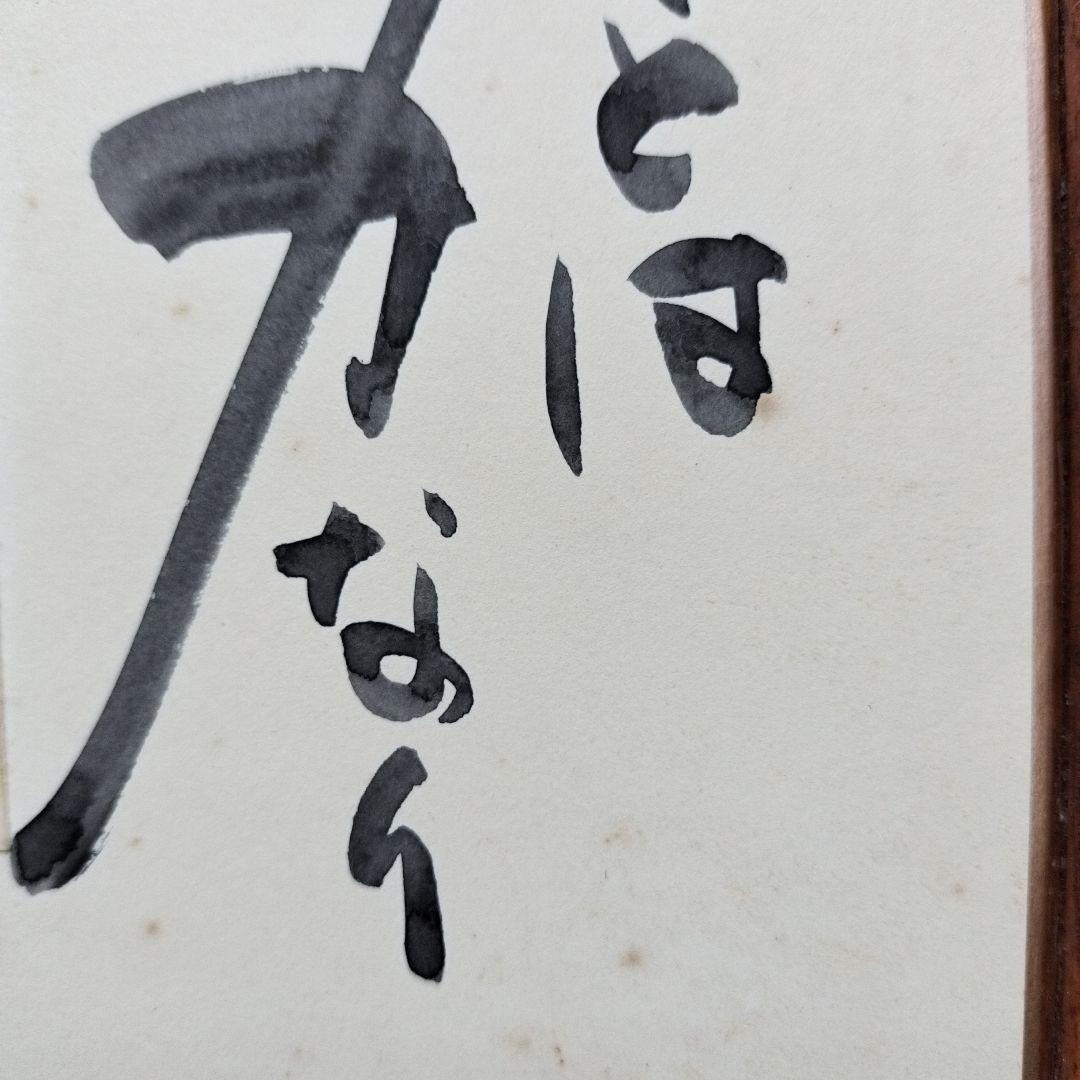 とは
力なり